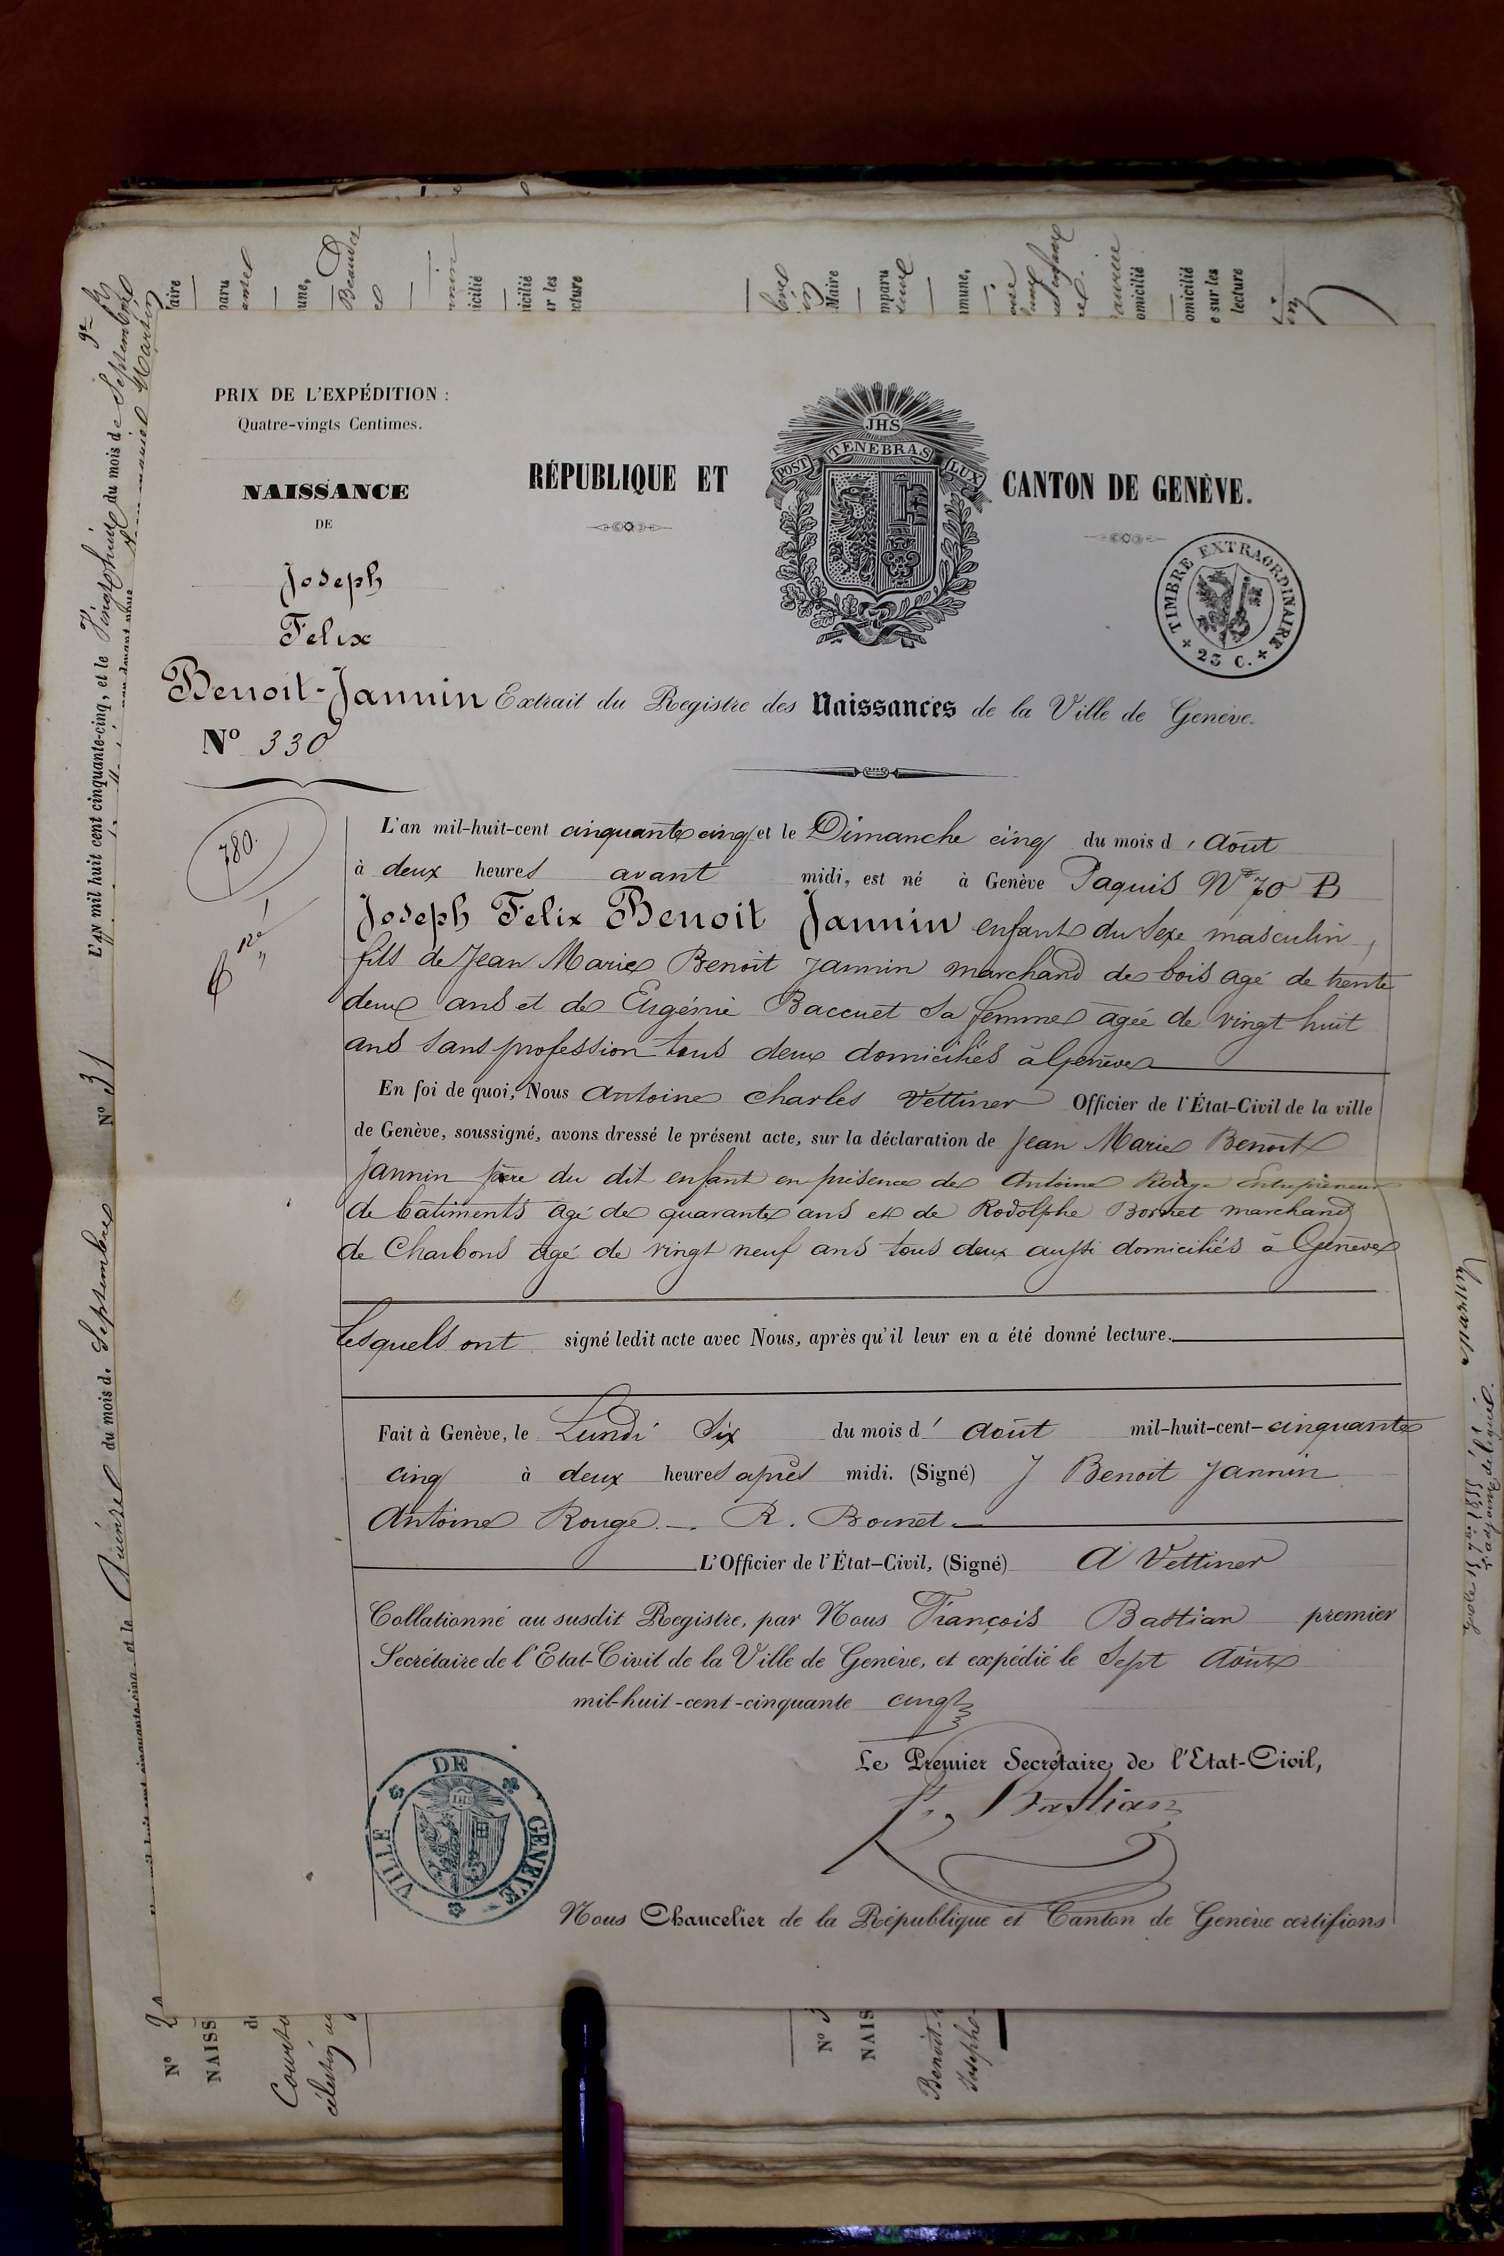 PRIX DE L'EXPÉDITION :
Quatre-vingts Centimes.
NAISSANCE
DE
Joseph
Felix
Benoit-Jannin
Nº 330
RÉPUBLIQUE ET
CANTON DE GENÈVE.
JHS
POST TENEBRAS LUX
TIMBRE EXTRAORDINAIRE
+ 25 C. +
Extrait du Registre des Naissances de la Ville de Genève.
780.
L'an mil-huit-cent cinquante cinq et le Dimanche cinq du mois d'Août
à deux heures avant midi, est né à Genève Paquis Nº 70 B
Joseph Felix Benoit Jannin enfant du Sexe masculin,
fils de Jean Marie Benoit Jannin marchand de bois agé de trente
deux ans et de Eugénie Baccuet sa femme agée de vingt huit
ans sans profession tous deux domiciliés à Genève
En foi de quoi, Nous Antoine Charles Vettiner Officier de l'État-Civil de la ville
de Genève, soussigné, avons dressé le présent acte, sur la déclaration de Jean Marie Benoit
Jannin père du dit enfant en présence de Antoine Rouge Entrepreneur
de bâtiments agé de quarante ans et de Rodolphe Bornet marchand
de Charbons agé de vingt neuf ans tous deux aussi domiciliés à Genève
Lesquels ont signé ledit acte avec Nous, après qu'il leur en a été donné lecture.
Fait à Genève, le Lundi Six du mois d'août mil-huit-cent-cinquante
cinq à deux heures après midi. (Signé) J Benoit Jannin
Antoine Rouge. R. Bornet.
L'Officier de l'État-Civil, (Signé) A Vettiner
Collationné au susdit Registre, par Nous François Bastian premier
Secrétaire de l'Etat-Civil de la Ville de Genève, et expédié le Sept Août
mil-huit-cent-cinquante cinq
Le Premier Secrétaire de l'Etat-Civil,
F. Bastian
VILLE DE GENEVE
Nous Chancelier de la République et Canton de Genève certifions
L'an mil huit cent cinquante-cinq, et le Vingthuit du mois de Septembre
Nº 31
du mois d. Septembre
Nº
NAISS
Nº 3
NAIS
Benoit-
Joseph